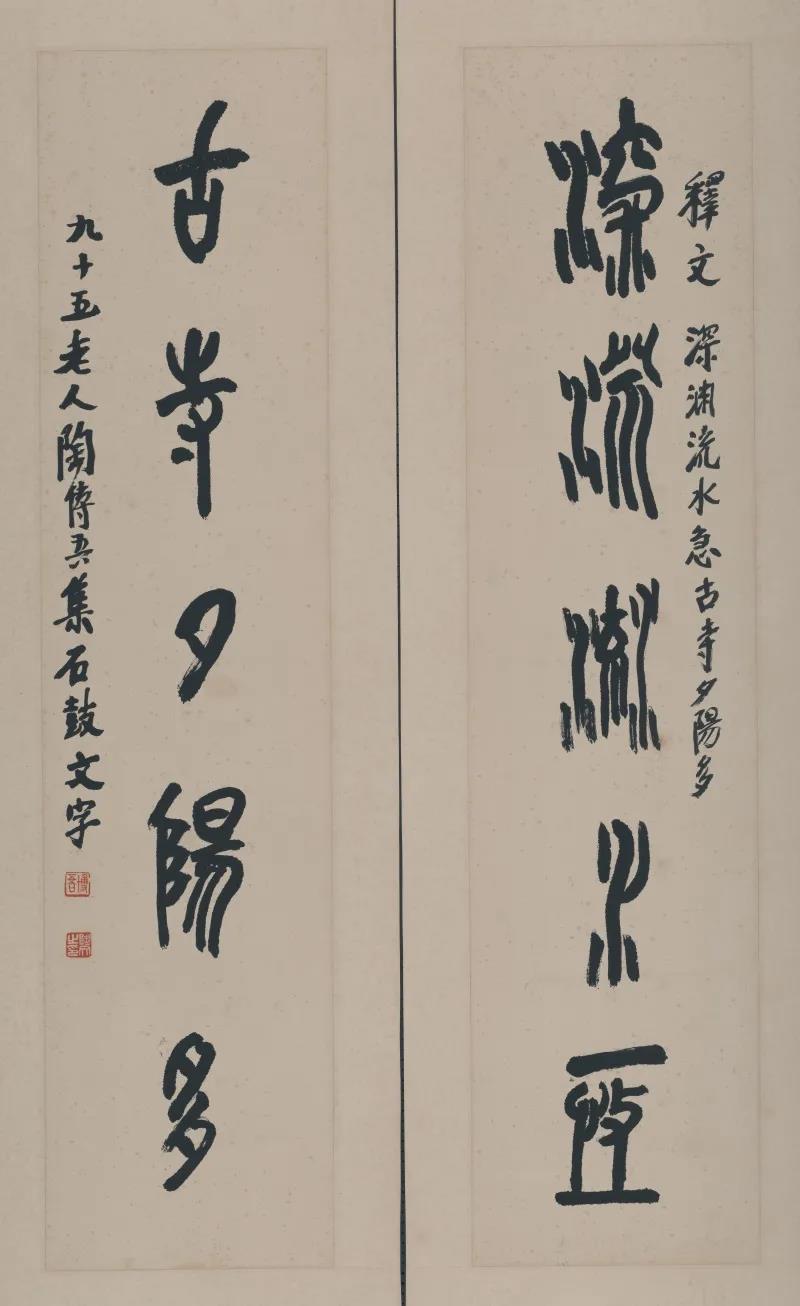 釋文 深渊流水急古寺夕陽多
深淵流水亟
古寺夕陽多
九十五老人陶博吾集石鼓文字
博吾